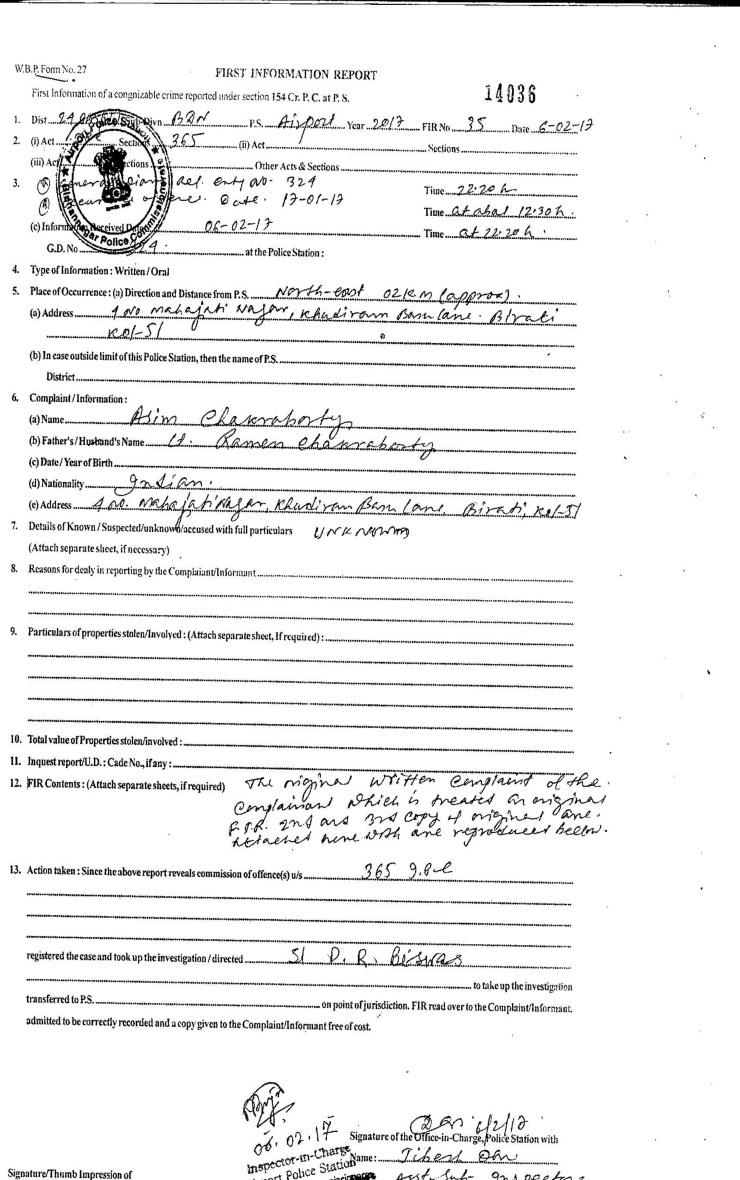 W.B.P. Form No. 27
FIRST INFORMATION REPORT
First Information of a congnizable crime reported under section 154 Cr. P. C. at P. S.
14036
1. Dist. Sub-Divn BDN P.S. Airport Year 2017 FIR No 35 Date 6-02-17
2. (i) Act Sections 365 (ii) Act Sections
(iii) Act Sections Other Acts & Sections
3. General Diary Ref. entry no- 324 Time 22:20 h
Date. 17-01-17 Time at abal 12:30 h.
(c) Information Received Date 06-02-17 Time at 22:20 h.
G.D. No at the Police Station :
4. Type of Information : Written / Oral
5. Place of Occurrence : (a) Direction and Distance from P.S. North-east 02 KM (approx).
(a) Address 4 No Mahajati Nagar, Khudiram Basu Lane. Birati
Kol-51
(b) In case outside limit of this Police Station, then the name of P.S.
District
6. Complaint / Information :
(a) Name Asim Chakraborty
(b) Father's / Husband's Name Lt. Ramen Chakraborty
(c) Date / Year of Birth
(d) Nationality Indian.
(e) Address 4 no. Mahajati Nagar, Khudiram Basu Lane, Birati, Kol-51
7. Details of Known / Suspected/unknown/accused with full particulars UNKNOWN
(Attach separate sheet, if necessary)
8. Reasons for dealy in reporting by the Complaiant/Informant
9. Particulars of properties stolen/Involved : (Attach separate sheet, If required) :
10. Total value of Properties stolen/involved :
11. Inquest report/U.D. : Cade No., if any :
12. FIR Contents : (Attach separate sheets, if required) The original written complaint of the
complainant which is treated as original
F.I.R. 2nd and 3rd copy of original are
attached here with are reproduced bellow.
13. Action taken : Since the above report reveals commission of offence(s) u/s 365 I.P.C
registered the case and took up the investigation / directed SI P. R. Biswas
to take up the investigation
transferred to P.S. on point of jurisdiction. FIR read over to the Complaint/Informant.
admitted to be correctly recorded and a copy given to the Complaint/Informant free of cost.
06.02.17
6/2/17
Signature of the Office-in-Charge, Police Station with
Inspector-in-Charge
Name :
Police Station
Asst. Sub- Inspector
Signature/Thumb Impression of